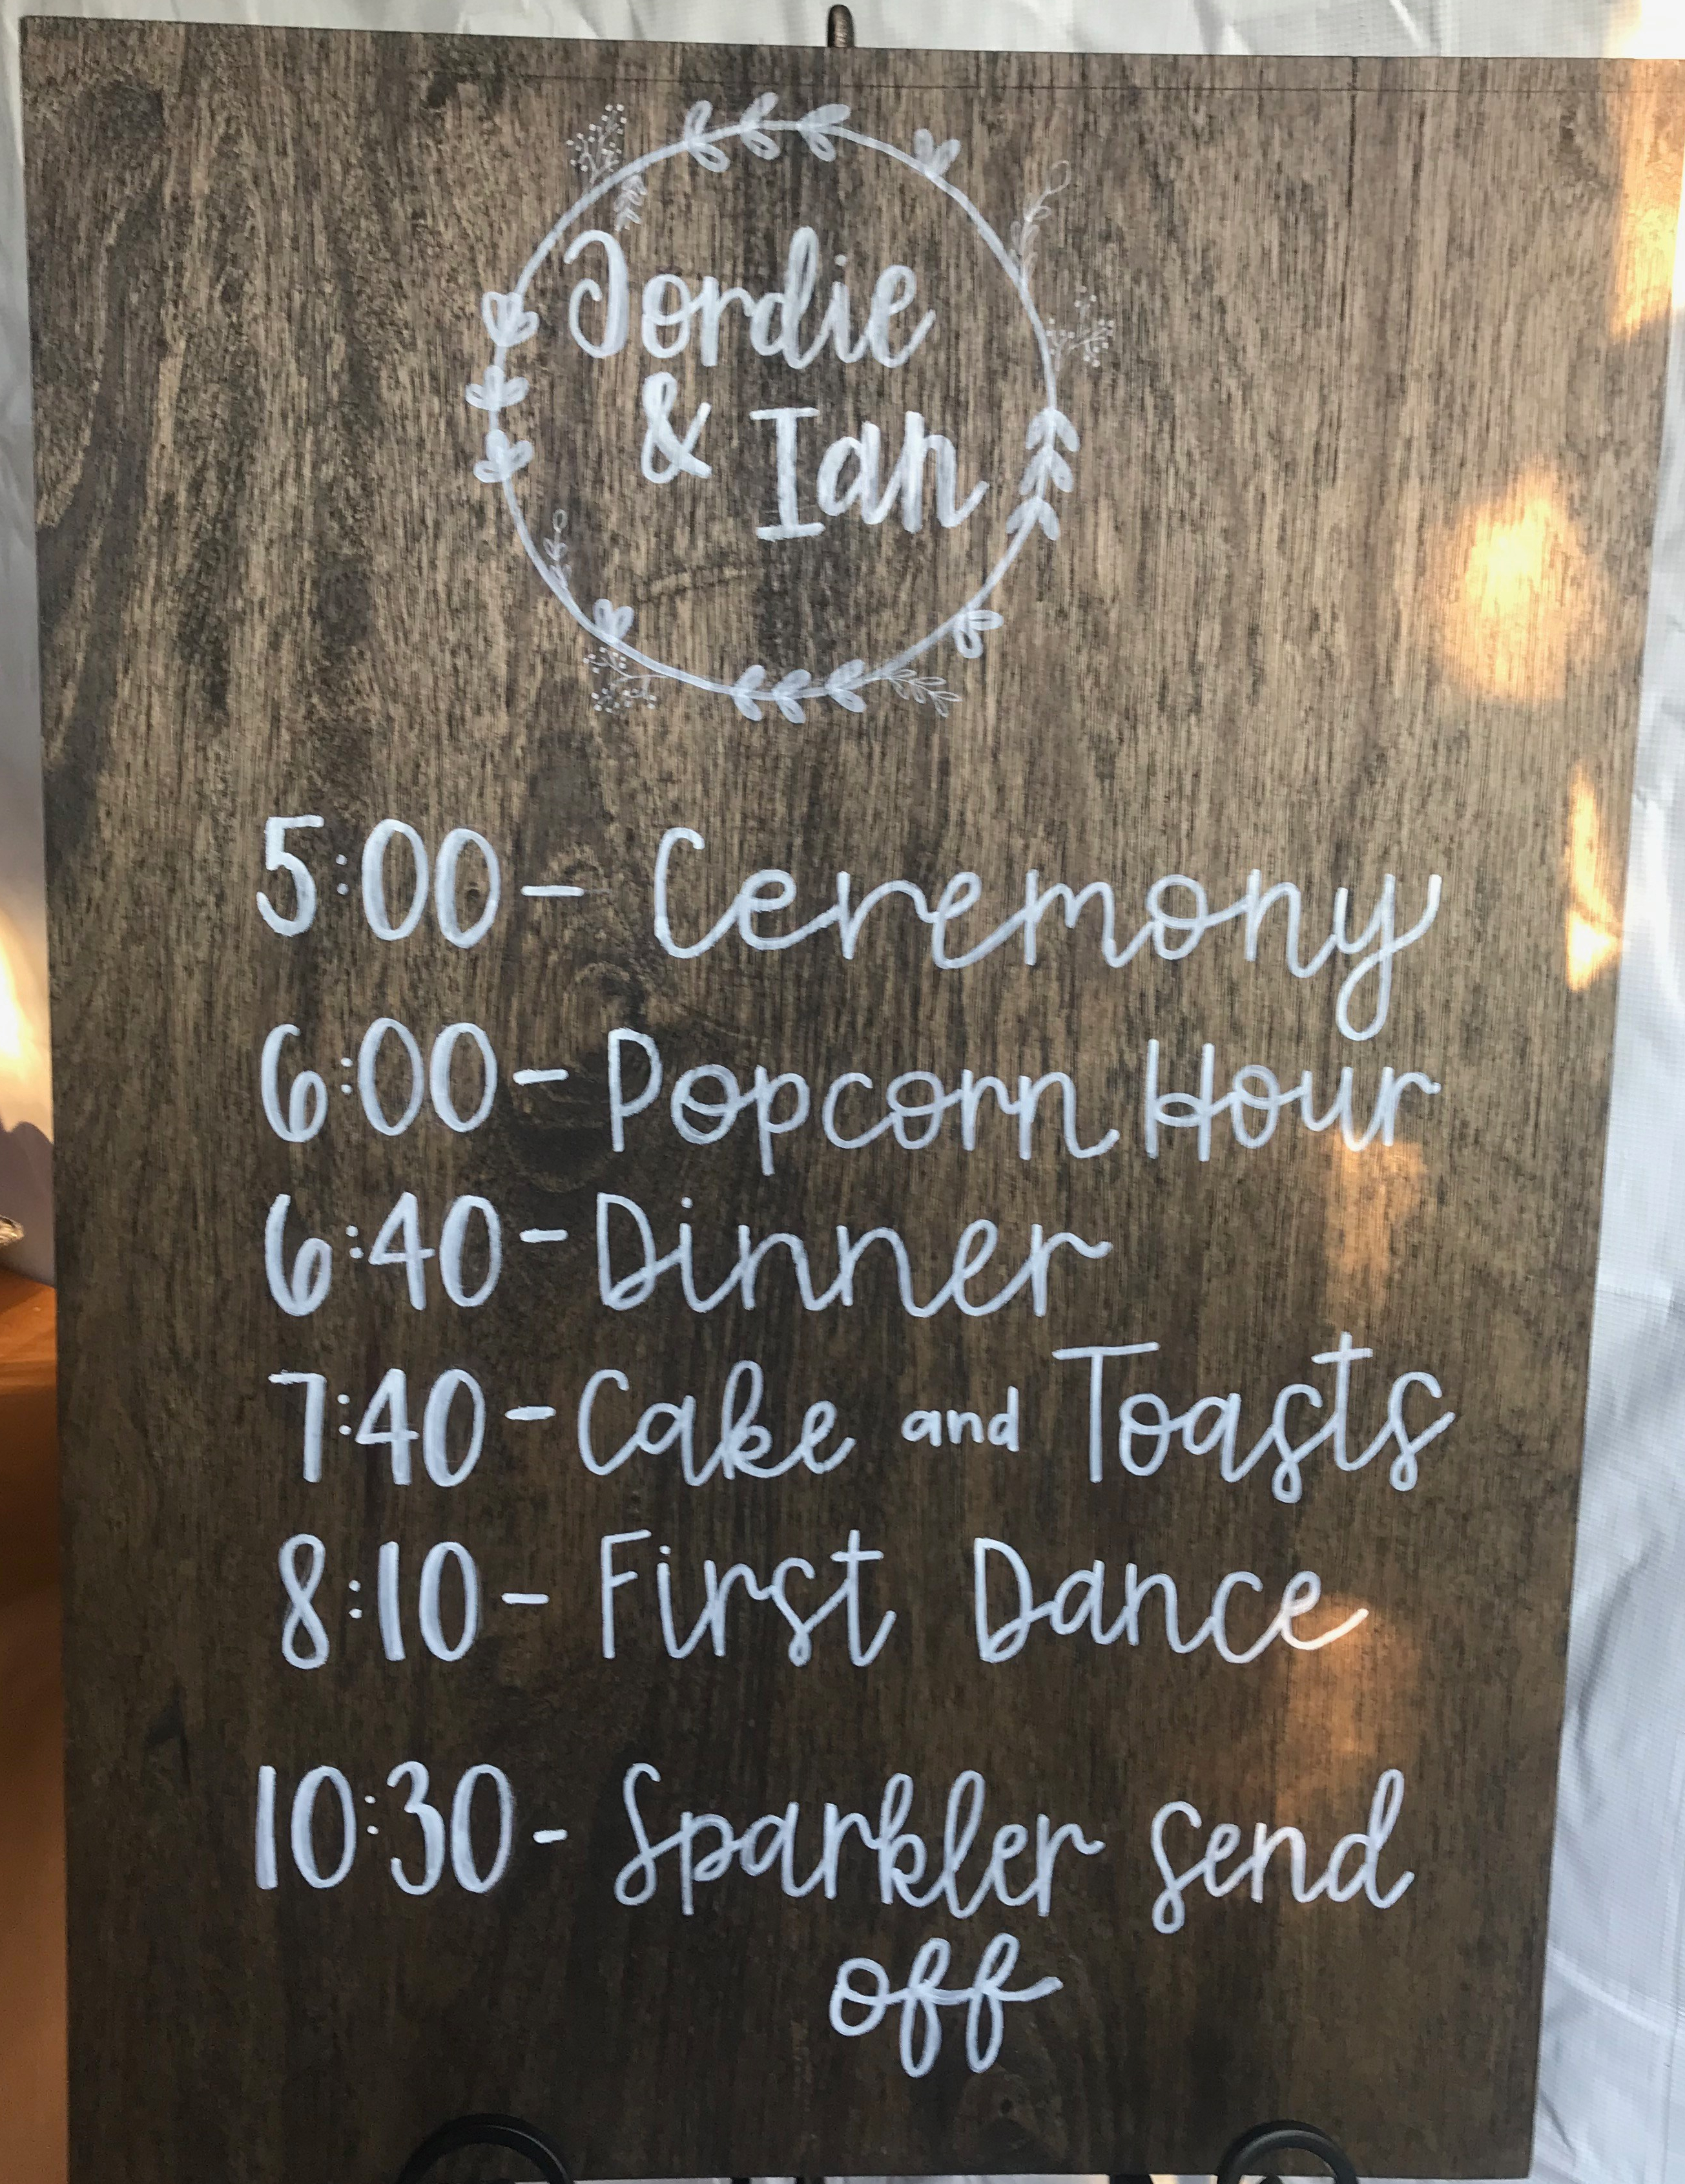 Jordie
& Ian
5:00 - Ceremony
6:00 - Popcorn Hour
6:40 - Dinner
7:40 - Cake and Toasts
8:10 - First Dance
10:30 - Sparkler send
off